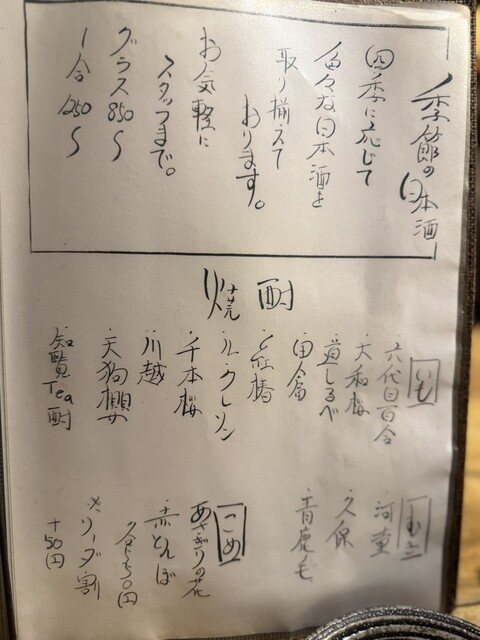 季節の日本酒
四季に応じて
色々な日本酒を
取り揃えて
おります。
お気軽に
スタッフまで。
グラス 850〜
1合 1250〜
焼酎
いも
・六代目百合
・大和桜
・道しるべ
・田倉
・と紅椿
・ル・クレソン
・千本桜
・川越
・天狗櫻
・知覧Tea酎
むぎ
・河童
・久保
・青鹿毛
こめ
・あさぎりの花
・赤とんぼ
全550円
※ソーダ割
+50円